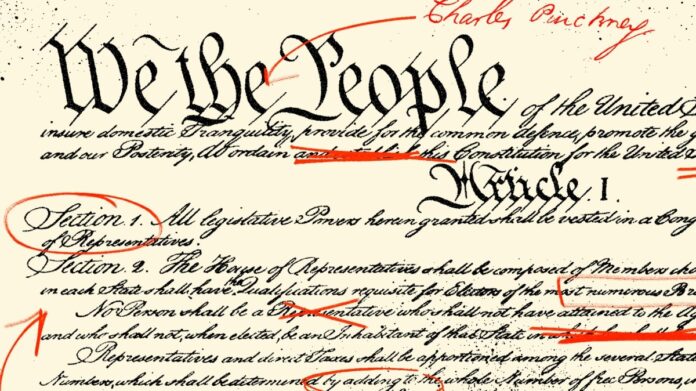 Charles Pinckney
We the People
of the United
insure domestic Tranquility, provide for the common defence, promote the
and our Posterity, do ordain and establish this Constitution for the United
Article. I.
Section. 1. All legislative Powers herein granted shall be vested in a Cong
of Representatives.
Section. 2. The House of Representatives shall be composed of Members cho
in each State shall have the Qualifications requisite for Electors of the most numerous Bra
No Person shall be a Representative who shall not have attained to the A
and who shall not, when elected, be an Inhabitant of that State in which he shall
Representatives and direct Taxes shall be apportioned among the several Stat
Numbers, which shall be determined by adding to the whole Number of free Persons